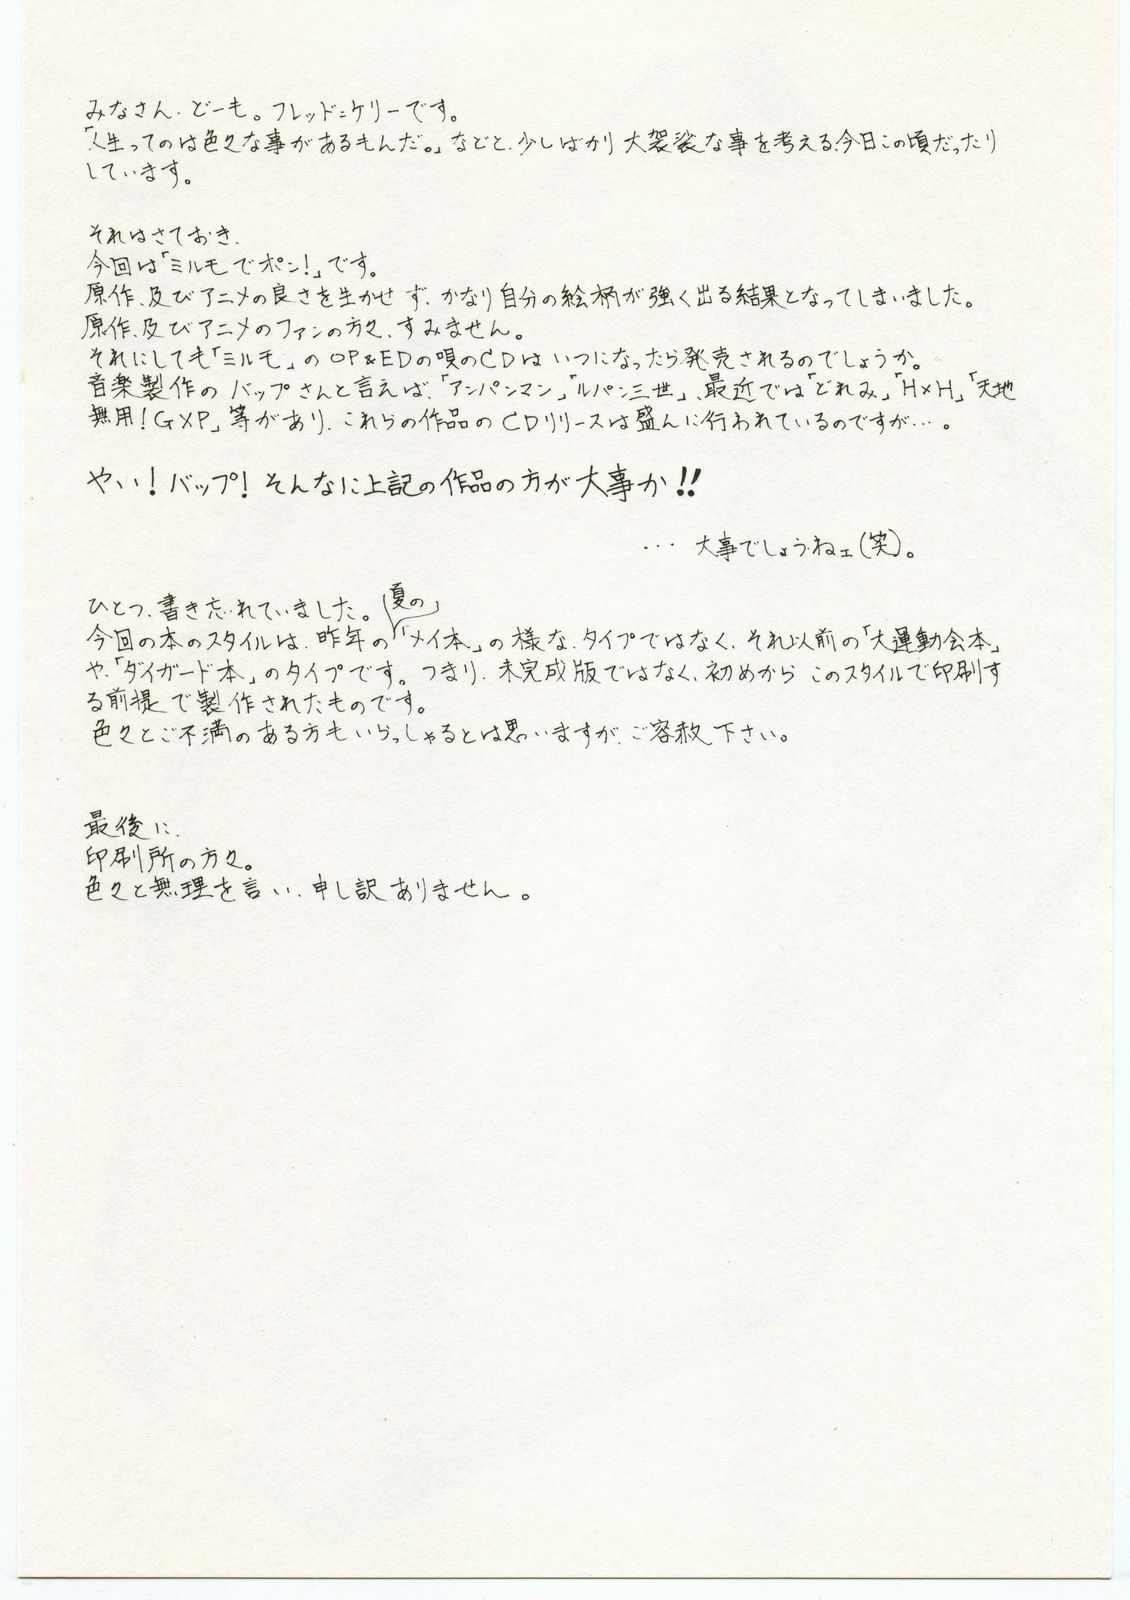 みなさん、どーも。フレッド=ケリーです。
「人生ってのは色々な事があるもんだ。」などと、少しばかり大袈裟な事を考える、今日この頃だったり
しています。
それはさておき、
今回は「ミルモでポン!」です。
原作、及びアニメの良さを生かせず、かなり自分の絵柄が強く出る結果となってしまいました。
原作、及びアニメのファンの方々、すみません。
それにしても「ミルモ」のOP&EDの唄のCDはいつになったら発売されるのでしょうか。
音楽製作のバップさんと言えば、「アンパンマン」「ルパン三世」、最近では「どれみ」「H×H」「天地
無用!GXP」等があり、これらの作品のCDリリースは盛んに行われているのですが…。
やい!バップ!そんなに上記の作品の方が大事か!!
…大事でしょうねェ(笑)。
ひとつ、書き忘れていました。
今回の本のスタイルは、昨年の夏の「メイ本」の様な、タイプではなく、それ以前の「大運動会本」
や、「ダイガード本」のタイプです。つまり、未完成版ではなく、初めからこのスタイルで印刷す
る前提で製作されたものです。
色々とご不満のある方もいらっしゃるとは思いますが、ご容赦下さい。
最後に、
印刷所の方々。
色々と無理を言い、申し訳ありません。